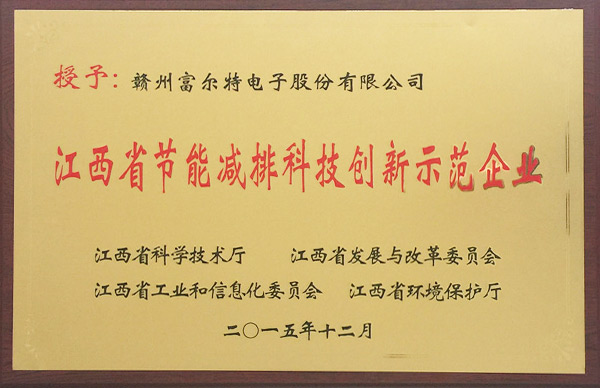 授予：赣州富尔特电子股份有限公司
江西省节能减排科技创新示范企业
江西省科学技术厅 江西省发展与改革委员会
江西省工业和信息化委员会 江西省环境保护厅
二〇一五年十二月